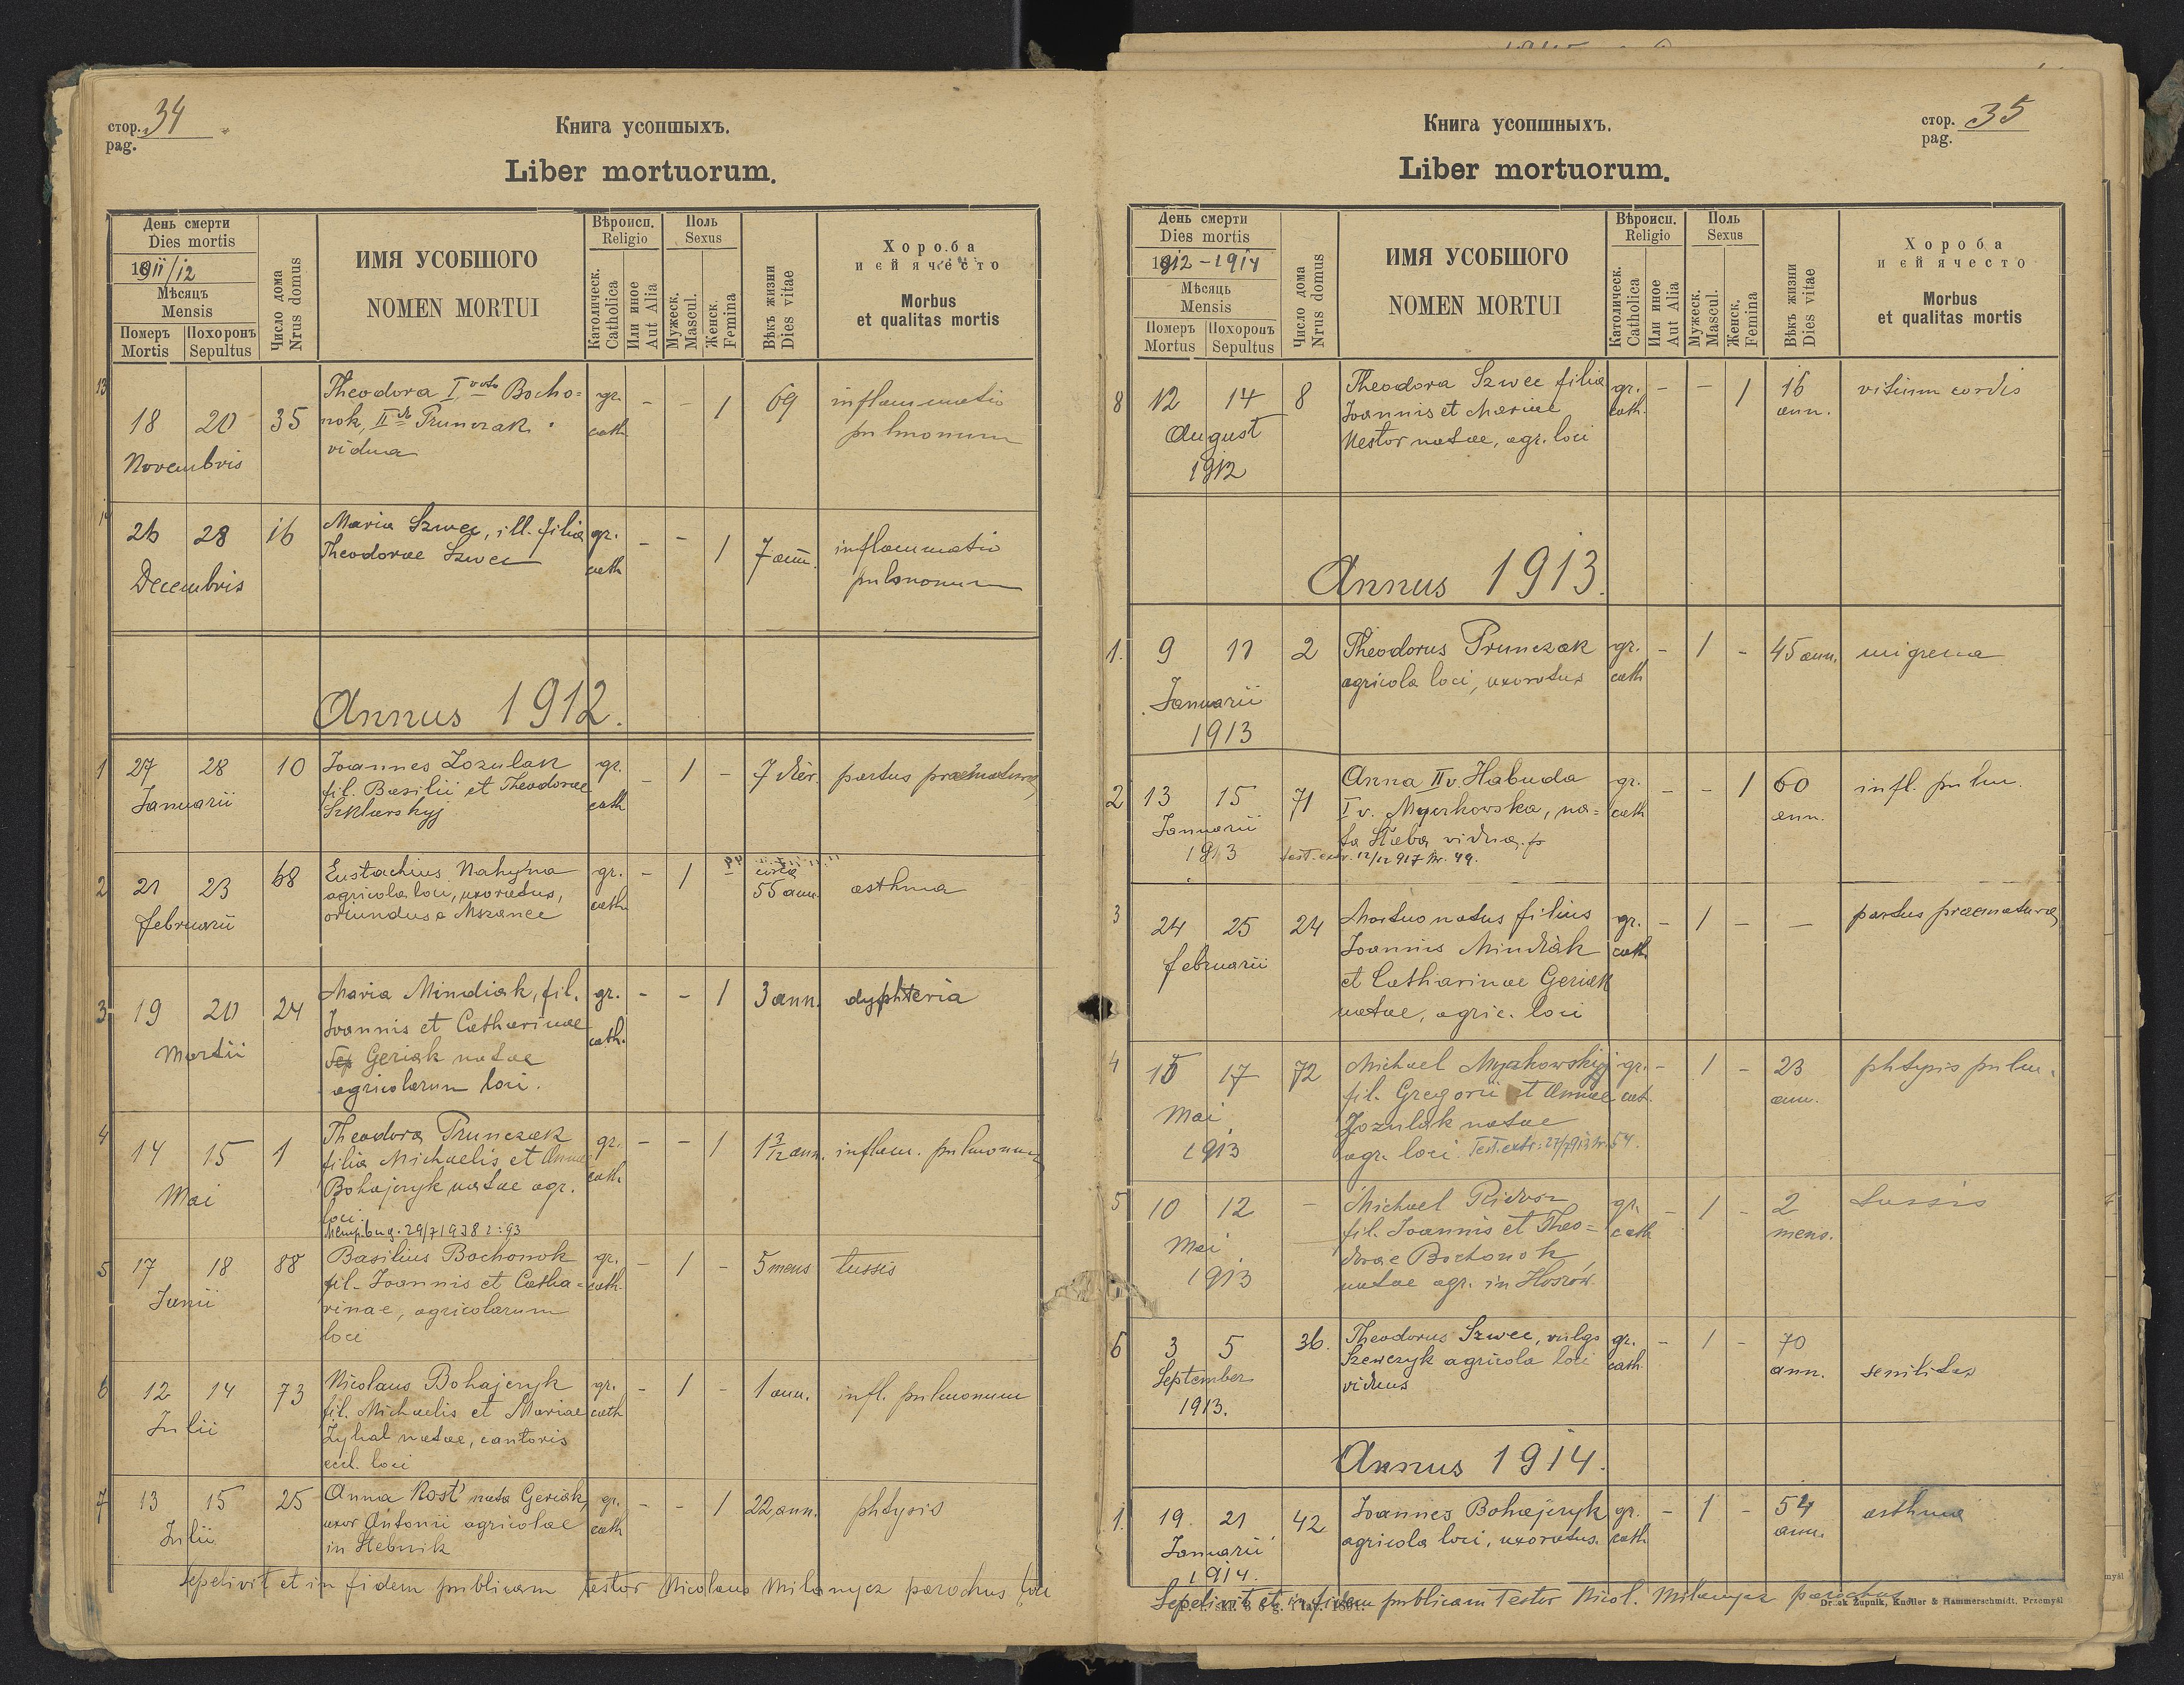 стор. 34
pag.
Книга усопшыхъ.
Liber mortuorum.
День смерти
Dies mortis
1911/12
Мѣсяцъ
Mensis
Померъ
Mortis
Похоронъ
Sepultus
Число дома
Nrus domus
ИМЯ УСОБШОГО
NOMEN MORTUI
Вѣроисп.
Religio
Католическ.
Catholica
Или иное
Aut Alia
Поль
Sexus
Мужеск.
Mascul.
Женск.
Femina
Вѣкъ жизни
Dies vitae
Хороба
и єй ячесто
Morbus
et qualitas mortis
13
18 20 35
Novembris
Theodora I voto Bocho=
nok, II do Prunczak
vidua
gr.
cath
- - 1 69
inflammatio
pulmonum
14
26 28 16
Decembris
Maria Szwec, ill. filia
Theodorae Szwec
gr.
cath
- - 1 7 ann.
inflammatio
pulmonum
Annus 1912.
1 27 28 10
Januarii
Joannes Zozulak
fil. Basilii et Theodorae
Szklarskyj
gr.
cath
- 1 - 7 dier. partus praematurus
2 21 23 68
februarii
Eustachius Nahyrna
agricola loci, uxoratus,
oriundus e Mszanec
gr.
cath
- 1 - circa
55 ann. asthma
3 19 20 24
Martii
Maria Mindiak, fil.
Joannis et Catharinae
Geriak natae
agricolarum loci.
gr.
cath.
- - 1 3 ann. dyphteria
4 14 15 1
Mai
Theodora Prunczak
filia Michaelis et Annae
Bohajczyk natae agr.
loci.
29/7 1938 93
gr.
cath
- - 1 1 3/12 ann. inflam. pulmonum
5 17 18 88
Junii
Basilius Bochonok
fil. Joannis et Catha=
rinae, agricolarum
loci
gr.
cath
- 1 - 5 mens tussis
6 12 14 73
Julii
Nicolaus Bohajczyk
fil. Michaelis et Mariae
Zyhal natae, cantoris
eccl. loci
gr.
cath
- 1 - 1 ann. infl. pulmonum
7 13 15 25
Julii
Anna Rost' nata Geriak,
uxor Antonii agricolae
in Stebnik
gr.
cath
- - 1 22 ann. phtysis
Sepelivit et in fidem publicam testor Nicolaus Milanycz parochus loci
стор. 35
pag.
Книга усопшныхъ.
Liber mortuorum.
День смерти
Dies mortis
1912-1914
Мѣсяцъ
Mensis
Померъ
Mortus
Похоронъ
Sepultus
Число дома
Nrus domus
ИМЯ УСОБШОГО
NOMEN MORTUI
Вѣроисп.
Religio
Католическ.
Catholica
Или иное
Aut Alia
Поль
Sexus
Мужеск.
Mascul.
Женск.
Femina
Вѣкъ жизни
Dies vitae
Хороба
и єй ячесто
Morbus
et qualitas mortis
8 12 14 8
August
1912
Theodora Szwec filia
Joannis et Mariae
Nestor natae, agr. loci
gr.
cath.
- - 1 16
ann.
vitium cordis
Annus 1913.
1. 9 11 2
Januarii
1913
Theodorus Prunczak
agricola loci, uxoratus
gr.
cath
- 1 - 45 ann. migrena
2 13 15 71
Januarii
1913
Anna II v. Habuda
I v. Myrkowska, na=
ta Steba vidua.
test. extr. 12/12 917 Nr. 49.
gr.
cath
- - 1 60
ann.
infl. pulm.
3 24 25 24
februarii
Mortuo natus filius
Joannis Mindiak
et Catharinae Geriak
natae, agric. loci
gr.
cath
- 1 - - partus praematurus
4 15 17 72
Mai
1913
Michael Myrkowskyj
fil. Gregorii et Annae
Zozulak natae
agr. loci. Test. extr. 27/7 913 Nr. 54.
gr.
cat.
- 1 - 23
ann.
phtysis pulm.
5 10 12 -
Mai
1913
Michael
fil. Joannis et Theo=
dorae Bochonok
natae agr. in Hoszów.
gr.
cath
- 1 - 2
mens.
tussis
6 3 5 36.
September
1913.
Theodorus Szwec, vulgo
Szewczyk agricola loci
viduus
gr.
cath.
- 1 - 70
ann.
senilitas
Annus 1914.
1. 19 21 42
Januarii
1914.
Joannes Bohajczyk
agricola loci, uxoratus.
gr.
cath
- 1 - 54
ann.
asthma
Sepelivit et in fidem publicam testor Nicol. Milanycz parochus
Druk Żupnik, Knoller & Hammerschmidt, Przemyśl